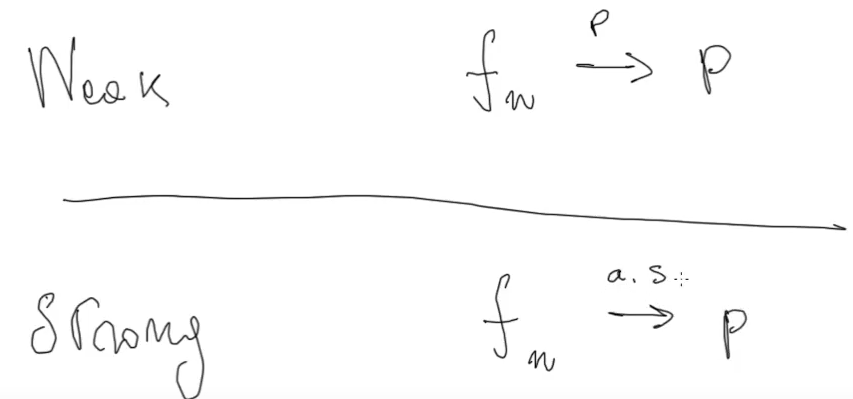 Weak fₙ →ᴾ p
Strong fₙ →ᵃ·ˢ· p